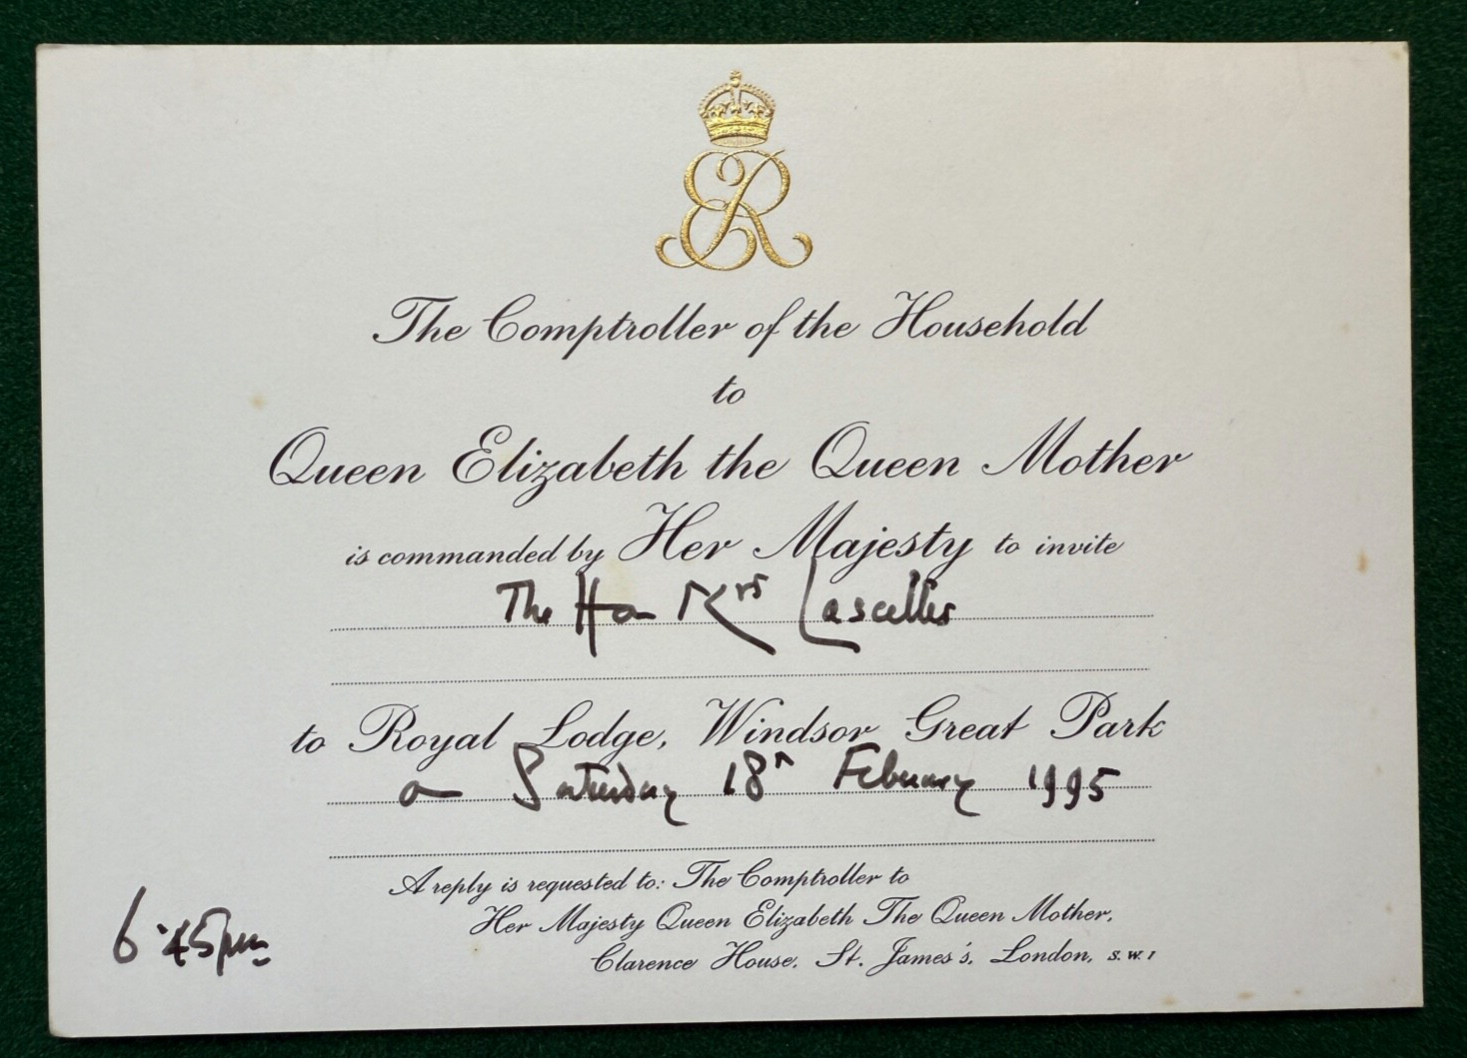 ER
The Comptroller of the Household
to
Queen Elizabeth the Queen Mother
is commanded by Her Majesty to invite
The Hon Mrs Lascelles
to Royal Lodge, Windsor Great Park
on Saturday 18th February 1995
A reply is requested to: The Comptroller to
Her Majesty Queen Elizabeth The Queen Mother,
Clarence House, St. James's, London, S.W.1
6.45pm